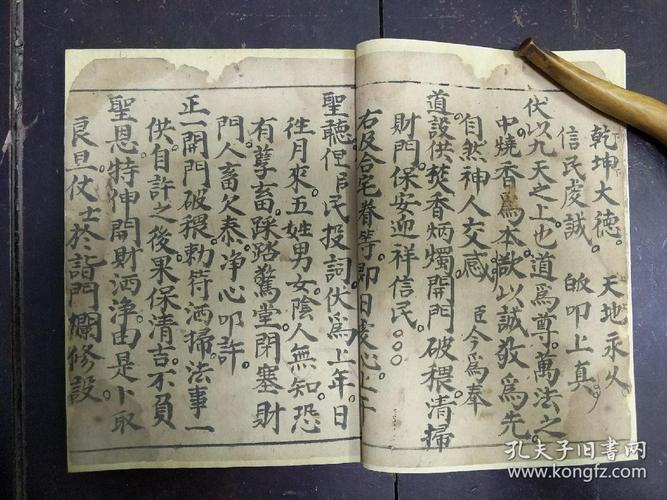 乾坤大德。 天地永久。
信民虔誠 皈叩上真。
伏以九天之上也道為尊。萬法之
中。燒香為本。欵以誠敬為先
自然神人交感。 臣今為奉
道設供。焚香炳燭開門破穢清掃
財門。保安迎祥信民。○○○
右及合宅眷等。即日虔心上干
聖聽。伹民投詞。伏為上年。日
徃月來。五姓男女。陰人無知。恐
有孽畜。踩踏驚堂。閉塞財
門。人畜欠泰。净心叩許。
正一開門破穢。勅符洒掃。法事一
供。自許之後。果保清吉。不負
聖恩。特伸開財洒净。由是卜取
良旦。仗士於詣門攔修設。
孔夫子旧书网
www.kongfz.com